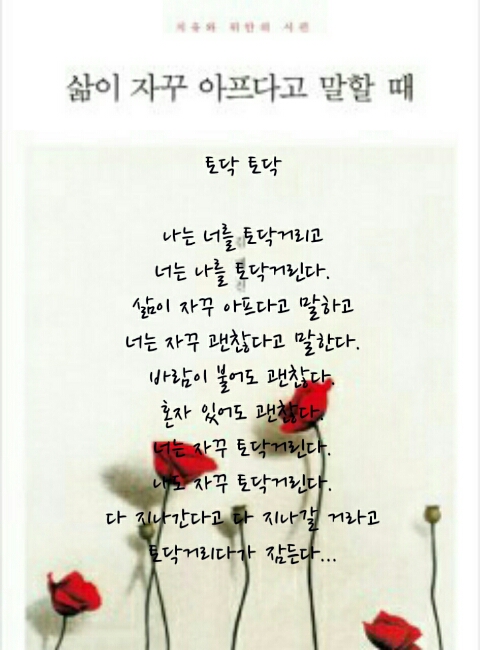 치유와 위안의 시편
삶이 자꾸 아프다고 말할 때
토닥 토닥
나는 너를 토닥거리고
너는 나를 토닥거린다.
삶이 자꾸 아프다고 말하고
너는 자꾸 괜찮다고 말한다.
바람이 불어도 괜찮다.
혼자 있어도 괜찮다.
너는 자꾸 토닥거린다.
나도 자꾸 토닥거린다.
다 지나간다고 다 지나갈 거라고
토닥거리다가 잠든다...